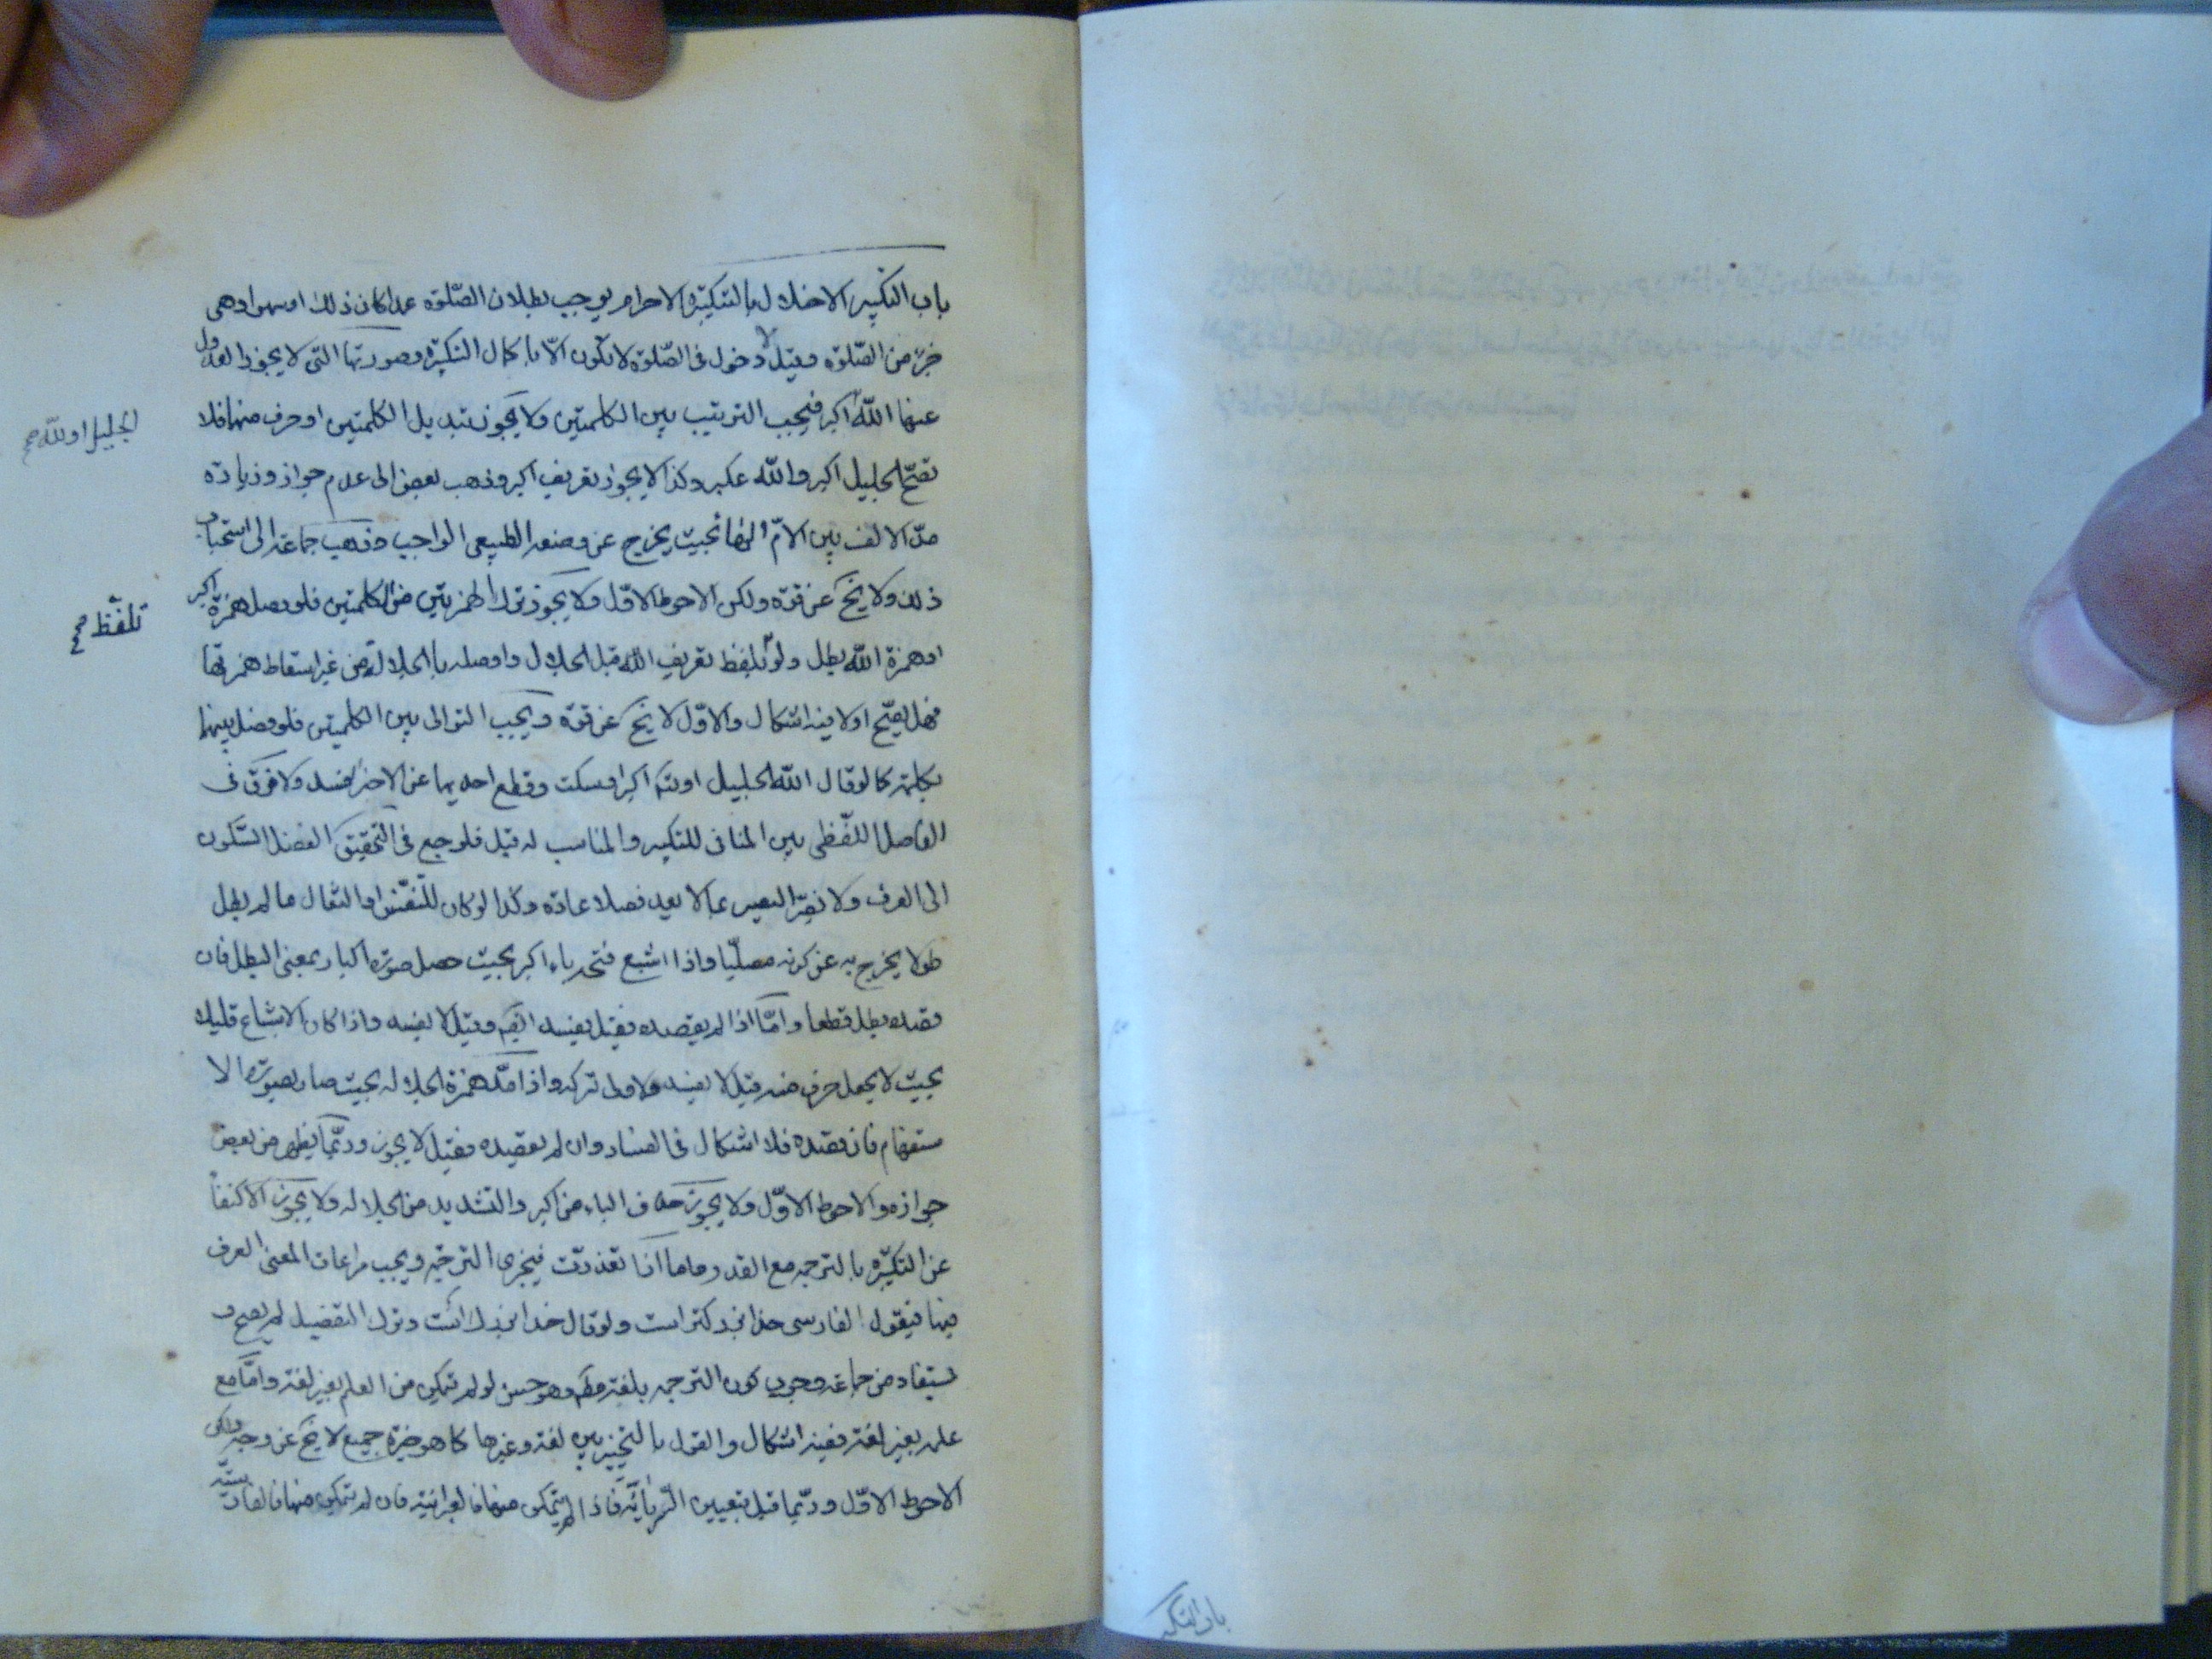 باب التكبير الاخلال بالتكبيرة الاحرام يوجب بطلان الصّلوة عمدا كان ذلك او سهوا وهى
جزء من الصّلوة وقيل لا دخول فى الصّلوة لا تكون الّا باكمال التكبيرة وصورتها التى لا يجوز العدول
عنها اللّه اكبر فيجب الترتيب بين الكلمتين ولا يجوز تبديل الكلمتين او حرف منها فلا
الجليل او للّه صح
تصّح الجليل اكبر واللّه عكبر وكذا لا يجوز تعريف اكبر وذهب بعض الى عدم جواز وزيادة
مدّ الالف بين الامّ والهاء بحيث يخرج عن وضعه الطبيعى الواجب وذهب جماعة الى استحباب
ذلك ولا يخ عن قوّه ولكن الاحوط الاوّل ولا يجوز ترك الهمزتين من الكلمتين فلو وصل همزة اكبر
تلفّظ صح
او همزة اللّه بطل ولو تلفظ بتعريف اللّه قبل الجلال واوصله بالجلالة من غير اسقاط همزتها
فهل يصّح اولا فيه اشكال والاوّل لا يخ عن قوّه ويجب التوالى بين الكلمتين فلو فصل بينهما
بكلمة كما لو قال اللّه الجليل اكبر او سكت وقطع احديهما عن الاخر فسد ولا فرق فى
الفاصل اللّفظى بين المنافى للتكبير والمناسب له قيل فلو جمع فى التحقيق الفصل السّكون
الى العرف ولا يضّر اليسير بما لا يعد فصلا عادة وكذا لو كان للتّنفّس او السّعال ما لم يطل
طولا يخرج به عن كونه مصلّيا واذا اشبع فتحة باء اكبر بحيث حصل صورة اكبار بمعنى الطبل فان
قصده بطل قطعا وامّا اذا لم يقصده فقيل يفسد ايضا وقيل لا يفسد واذا كان الاشباع قليلا
بحيث لا يحصل حرف منه قيل لا يفسد والاولى تركه واذا مدّ همزة الجلاله بحيث صار بصورة الا
ستفهام فان قصده فلا اشكال فى الفساد وان لم يقصده فقيل لا يجوز وربّما يظهر من بعض
جوازه والاحوط الاوّل ولا يجوز حذف الباء من اكبر والتشديد من الجلاله ولا يجوز الاكتفاء
عن التكبيرة بالترجمه مع القدرة واما اذا تعذّرت فيجزى الترجمة ويجب مراعات المعنى العرفى
فيها فيقول الفارسى خدا بزرگتر است ولو قال خدا بزرك است وترك التفضيل لم يصح و
يستفاد من جماعة وجوب كون الترجمه بلغته مطلقا وهو حسن لو لم يتمكن من العلم بغير لغته وامّا مع
علمه بغير لغته ففيه اشكال والقول بالتخيير بين لغته وغيرها كما هو خيرة جمع لا يخ عن وجه ولكن
الاحوط الاوّل وربّما قيل بتعيين السّريانيّة فاذا لم يتمكن منها فالعبرانيّة فان لم يتمكن منها فالفارسيّه
باب التكبير